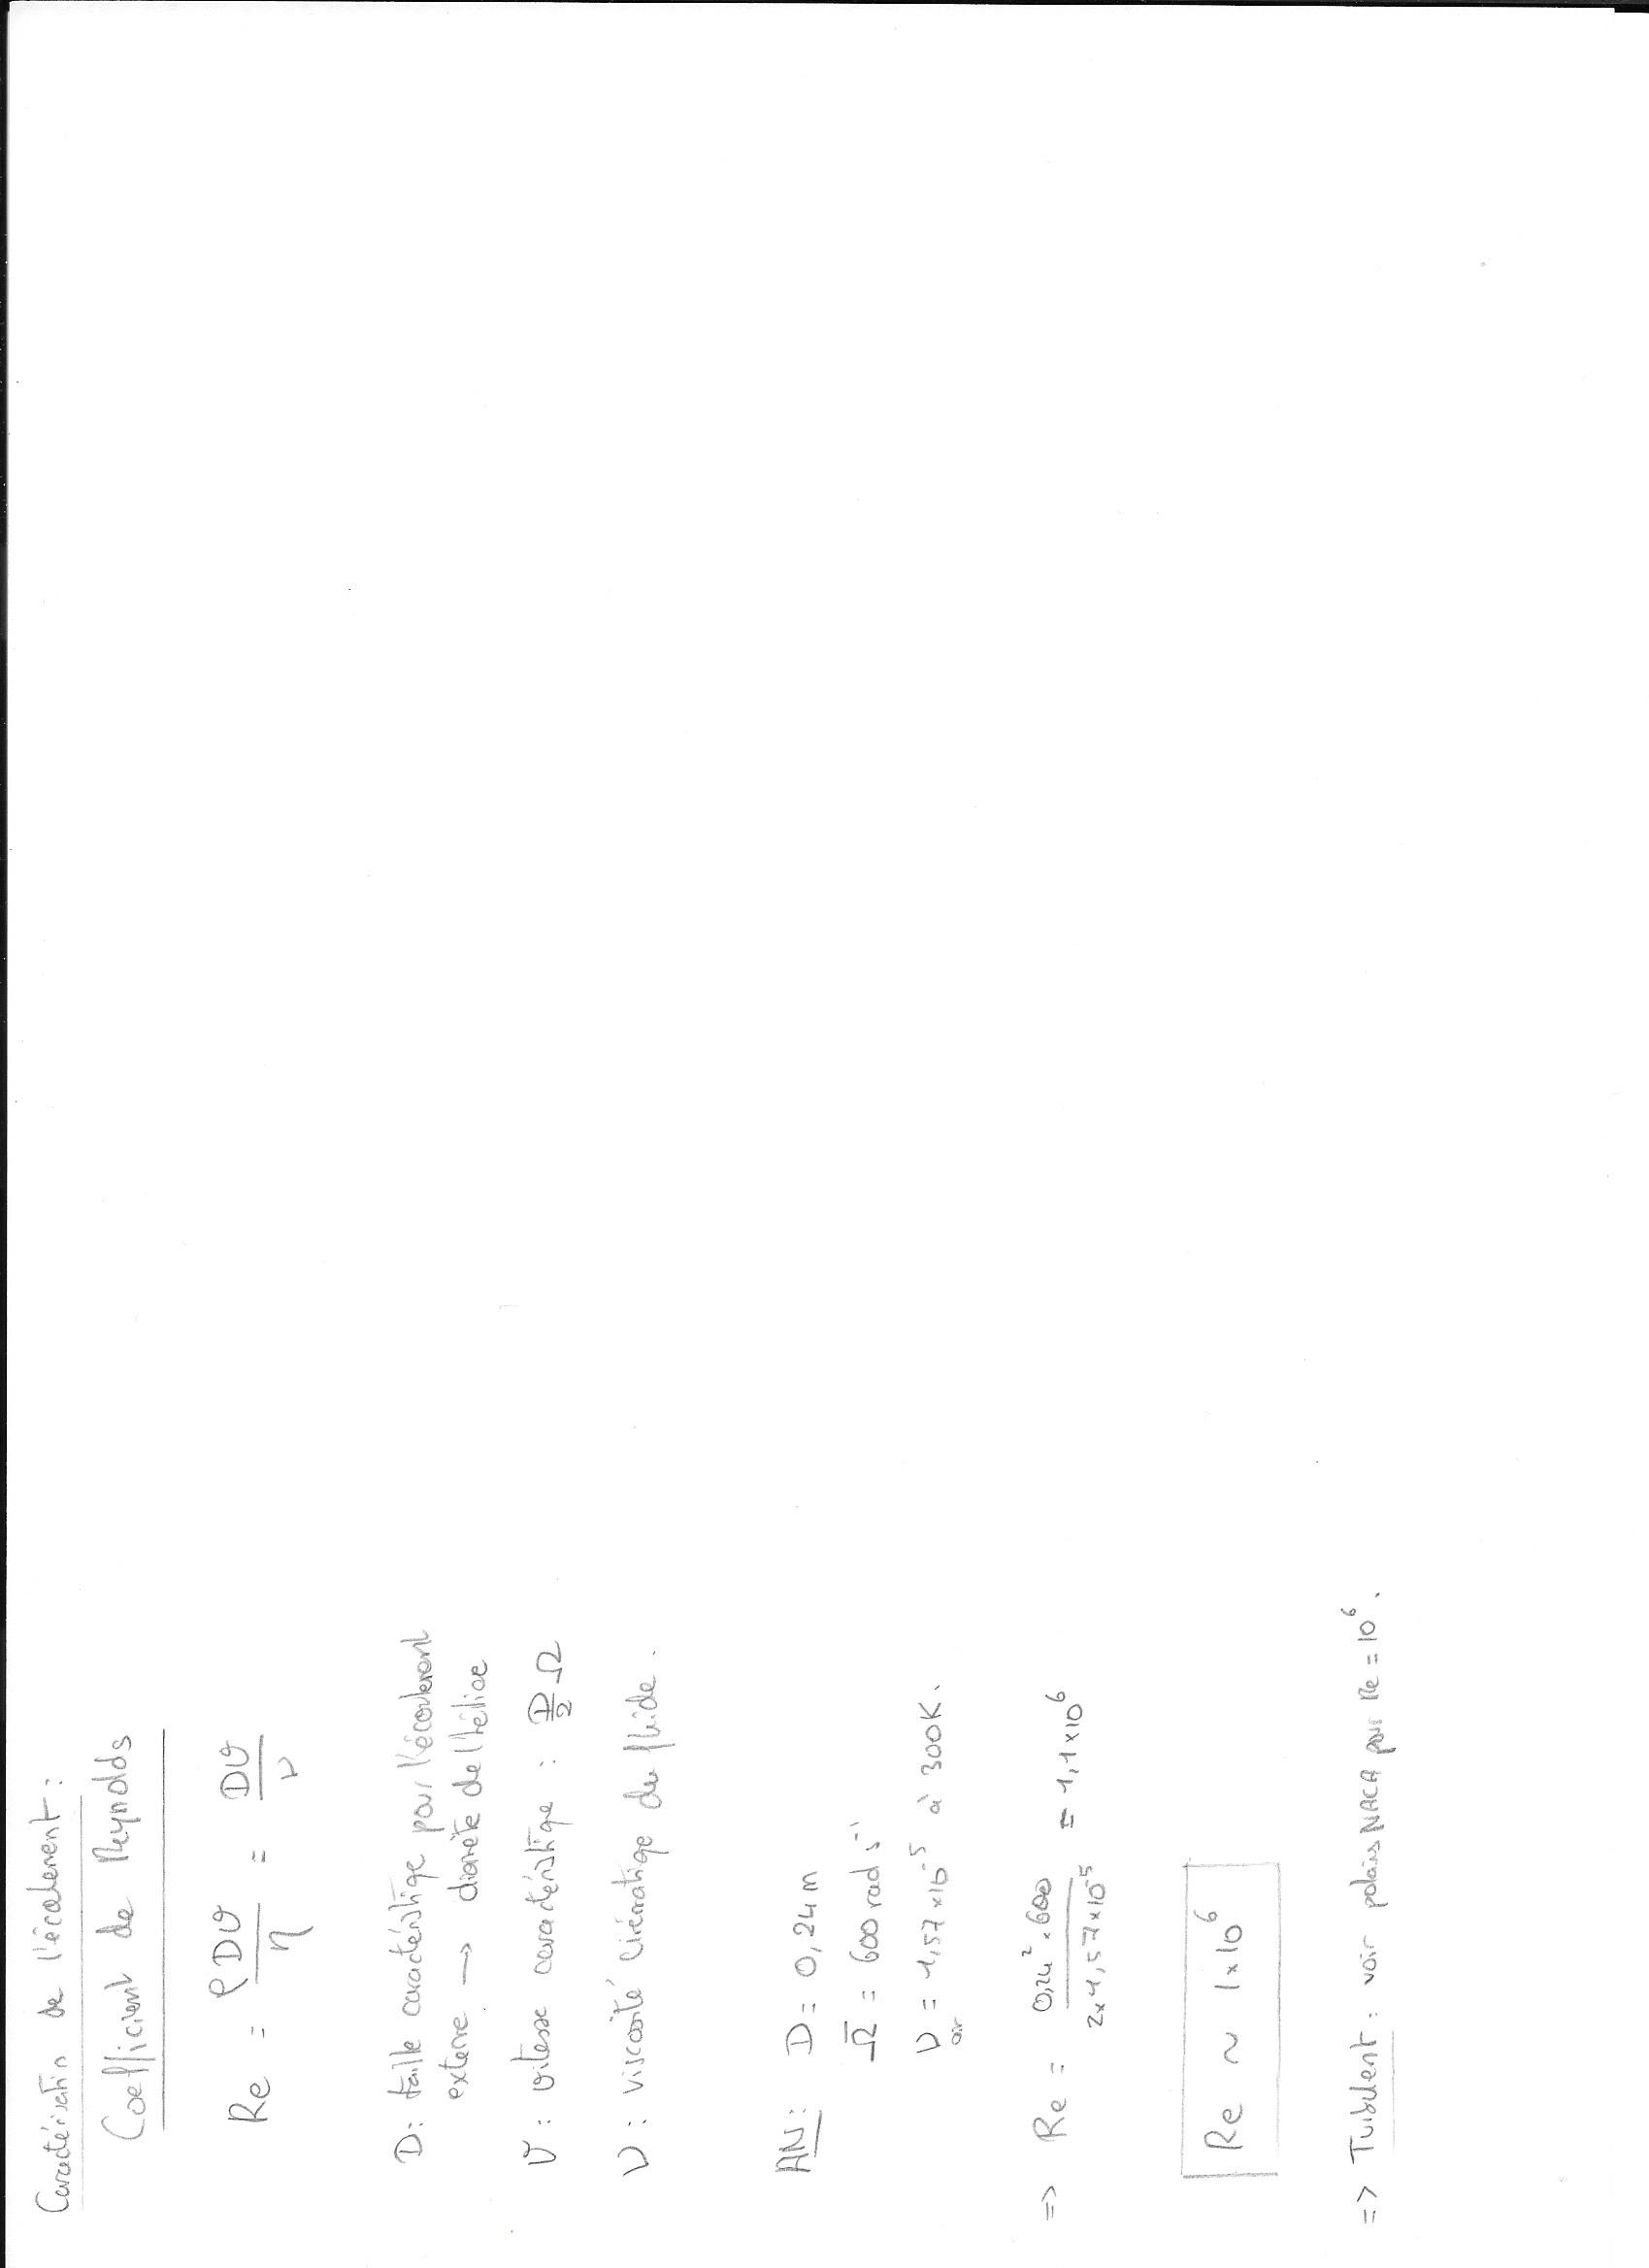 Caractérisation de l'écoulement :
Coefficient de Reynolds
Re = ρDv/η = Dv/ν
D: taille caractéristique pour l'écoulement
externe → diamètre de l'hélice
v : vitesse caractéristique : D/2 Ω
ν : viscosité cinématique du fluide.
AN: D = 0,24 m
Ω̄ = 600 rad s⁻¹
ν air = 1,57×10⁻⁵ à 300K.
=> Re = 0,24² × 600 / 2×1,57×10⁻⁵ = 1,1×10⁶
Re ~ 1×10⁶
=> Turbulent : voir polaires NACA pour Re = 10⁶.